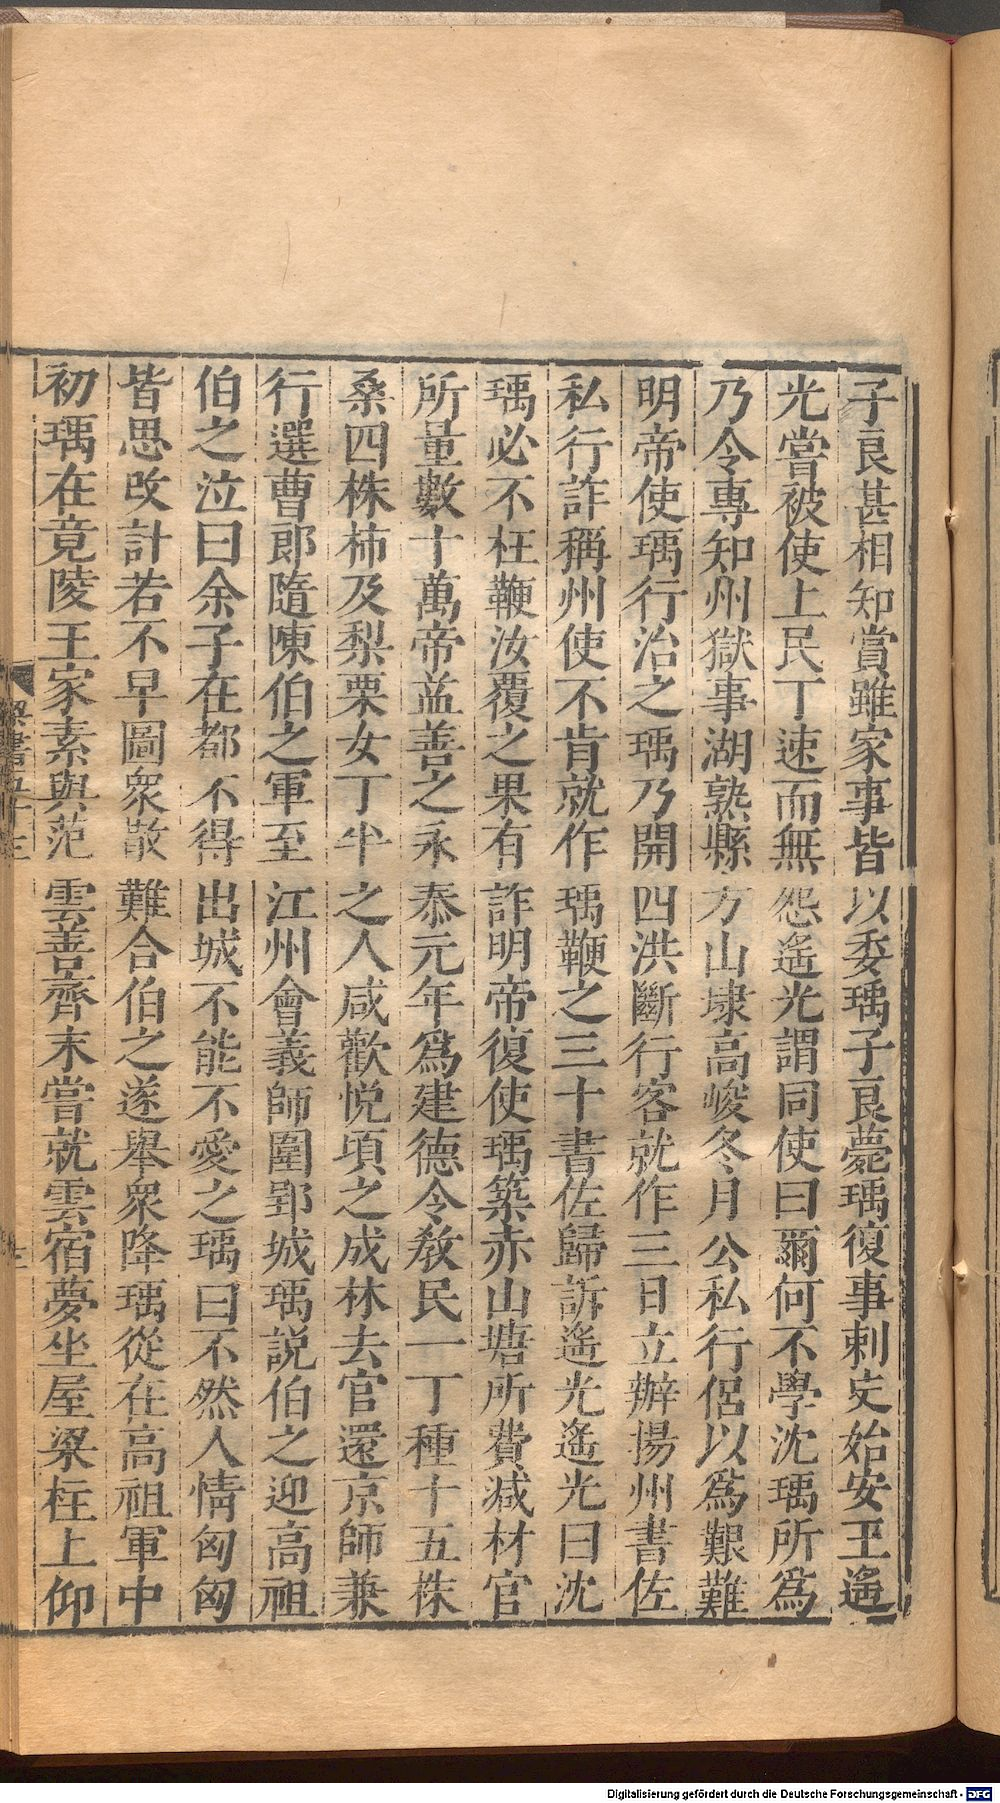 子良甚相知賞雖家事皆以委瑀子良薨瑀復事刺史始安王遙
光嘗被使上民丁速而無怨遙光謂同使曰爾何不學沈瑀所為
乃令專知州獄事湖熟縣方山埭高峻冬月公私行侶以為艱難
明帝使瑀行治之瑀乃開四洪斷行客就作三日立辦揚州書佐
私行詐稱州使不肯就作瑀鞭之三十書佐歸訴遙光遙光曰沈
瑀必不枉鞭汝覆之果有詐明帝復使瑀築赤山塘所費減材官
所量數十萬帝益善之永泰元年為建德令教民一丁種十五株
桑四株柿及梨栗女丁半之人咸歡悅頃之成林去官還京師兼
行選曹郎隨陳伯之軍至江州會義師圍郢城瑀說伯之迎高祖
伯之泣曰余子在都不得出城不能不愛之瑀曰不然人情匈匈
皆思改計若不早圖眾散難合伯之遂舉眾降瑀從在高祖軍中
初瑀在竟陵王家素與范雲善齊末嘗就雲宿夢坐屋梁柱上仰
梁書五十三
Digitalisierung gefördert durch die Deutsche Forschungsgemeinschaft - DFG